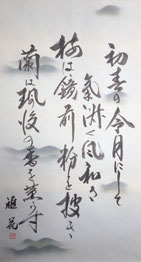 初春の令月にして
氣淑く風和き
梅は鏡前の粉を披き
蘭は珮後の香を薫す